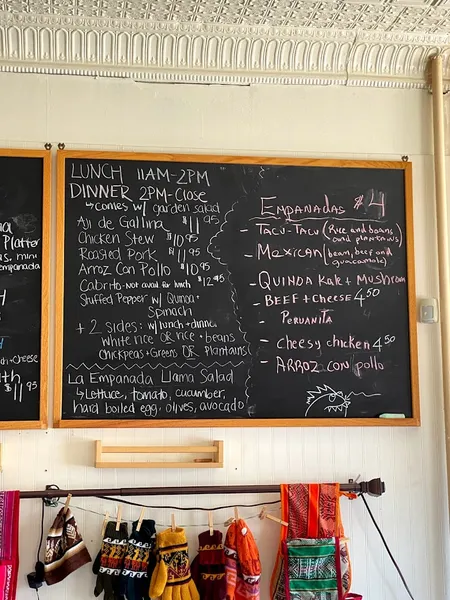 Platter
s, mini
empanada
ch+cheese
$11.95
LUNCH 11AM-2PM
DINNER 2PM-Close
↳comes w/ garden salad
Aji de Gallina $11.95
Chicken Stew $10.95
Roasted Pork $11.95
Arroz Con Pollo $10.95
Cabrito-Not avail for lunch $12.95
Stuffed Pepper w/ Quinoa+
Spinach
+ 2 sides: w/lunch+dinner
white rice OR rice+beans
Chickpeas+Greens OR Plantains
La Empanada Llama Salad
↳Lettuce, tomato, cucumber,
hard boiled egg, olives, avocado
EMPANADAS $4
- TACU-TACU (Rice and beans
and plantains)
- MEXICAN (bean, beef and
guacamole)
- QUINOA Kale + MUSHROOM
- BEEF + CHEESE 4.50
- PERUANITA
- cheesy chicken 4.50
- ARROZ CON pollo